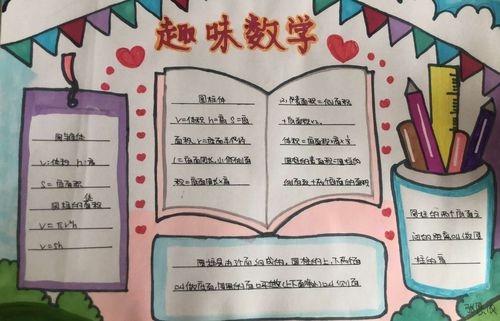 趣味数学
圆柱体
V=体积 h=高 S=底
面积 r=底面半径
C=底面周长 小侧面面
积=底面周长×高
2.表面积=侧面积
+底面积×2
体积=底面积×高
圆柱的表面积=圆柱的
侧面积+两个底面的面积
圆与柱体
V:体积 h:高
S=底面积
圆柱体的体积
V=πr²h
V=sh
圆柱的两个底面之
间的距离叫做圆
柱的高
圆柱是由3个面组成的,圆柱的上、下两个面
叫做底面,圆柱的面